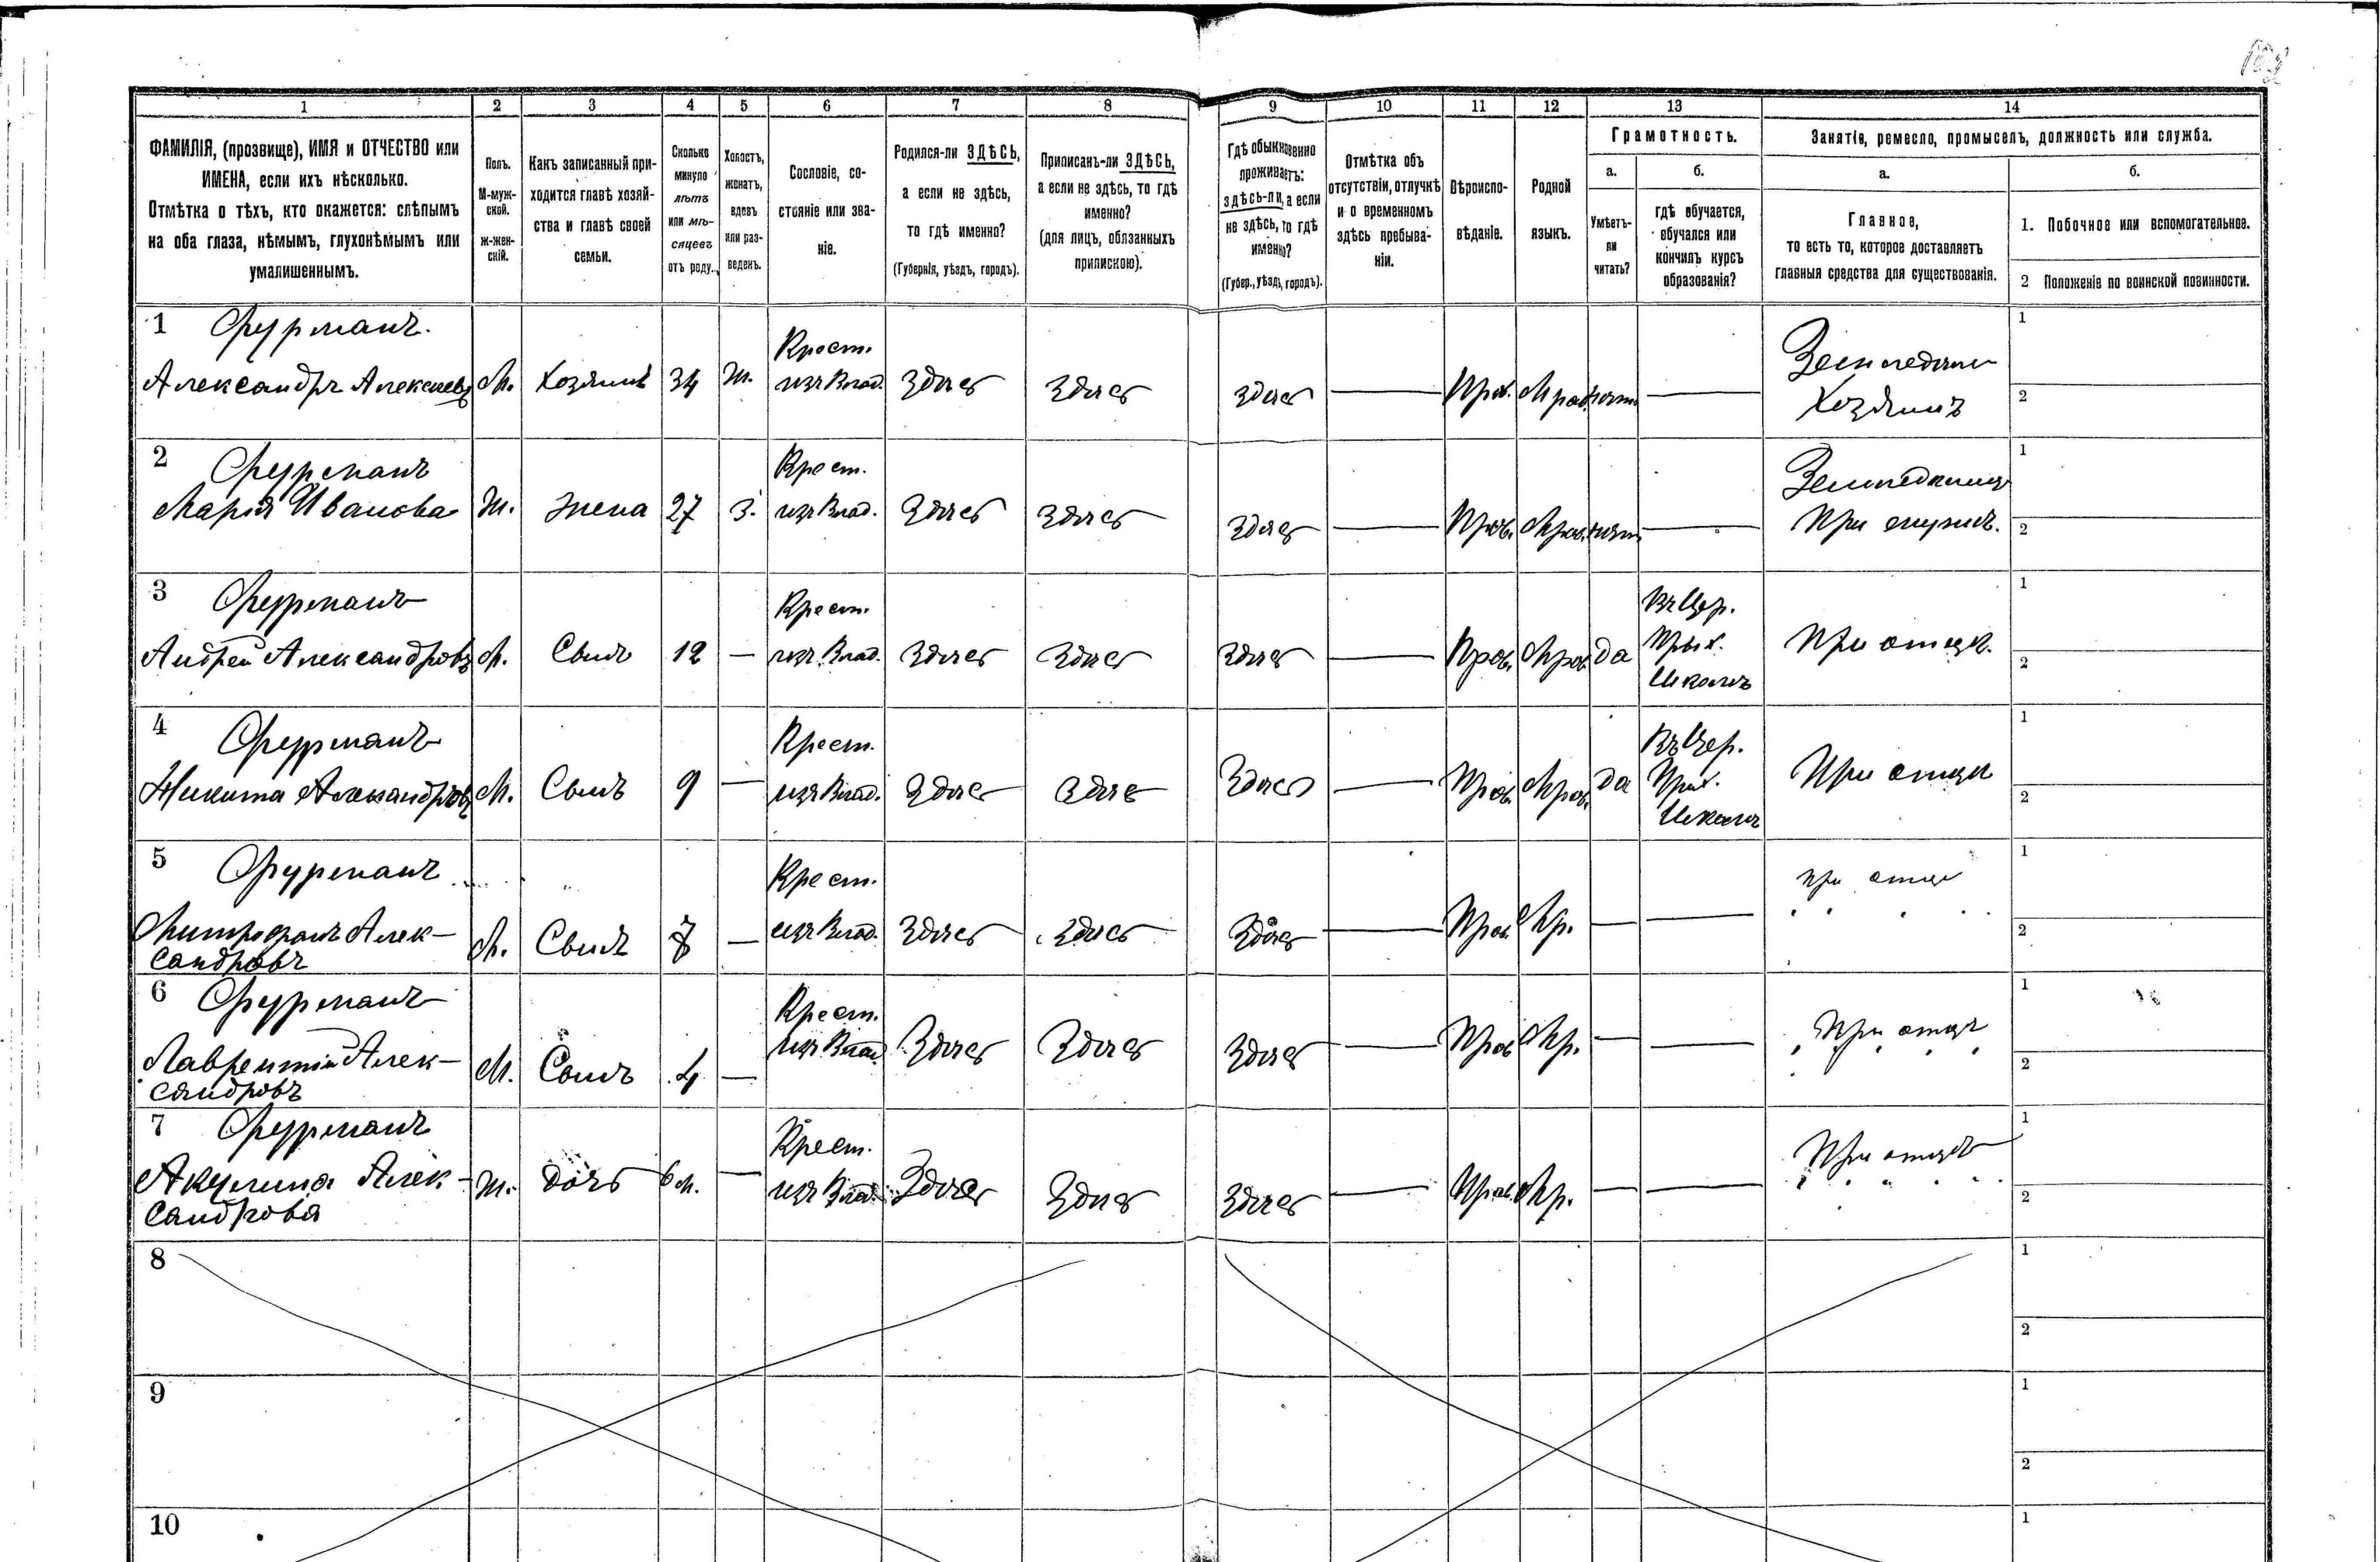 1 2 3 4 5 6 7 8 9 10 11 12 13 14
ФАМИЛІЯ, (прозвище), ИМЯ и ОТЧЕСТВО или
ИМЕНА, если ихъ нѣсколько.
Отмѣтка о тѣхъ, кто окажется: слѣпымъ
на оба глаза, нѣмымъ, глухонѣмымъ или
умалишеннымъ.
Полъ.
М-муж-
ской.
ж-жен-
скій.
Какъ записанный при-
ходится главѣ хозяй-
ства и главѣ своей
семьи.
Сколько
минуло
лѣтъ
или мѣ-
сяцевъ
отъ роду.
Холостъ,
женатъ,
вдовъ
или раз-
веденъ.
Сословіе, со-
стояніе или зва-
ніе.
Родился-ли ЗДѢСЬ,
а если не здѣсь,
то гдѣ именно?
(Губернія, уѣздъ, городъ).
Приписанъ-ли ЗДѢСЬ,
а если не здѣсь, то гдѣ
именно?
(для лицъ, обязанныхъ
припискою).
Гдѣ обыкновенно
проживаетъ:
здѣсь-ли, а если
не здѣсь, то гдѣ
именно?
(Губер., уѣздъ, городъ).
Отмѣтка объ
отсутствіи, отлучкѣ
и о временномъ
здѣсь пребыва-
ніи.
Вѣроиспо-
вѣданіе.
Родной
языкъ.
Грамотность.
а.
Умѣетъ-
ли
читать?
б.
гдѣ обучается,
обучался или
кончилъ курсъ
образованія?
Занятіе, ремесло, промыселъ, должность или служба.
а.
Главное,
то есть то, которое доставляетъ
главныя средства для существованія.
б.
1. Побочное или вспомогательное.
2 Положеніе по воинской повинности.
1 Фурманъ.
Александръ Алексеевъ М. Хозяинъ 34 ж. Крест.
изъ Влад. Здѣсь Здѣсь Здѣсь — Прав. Мрав. нѣтъ — Земледѣлие
Хозяинъ
1
2
2 Фурманъ
Марія Иванова Ж. Жена 27 З. Крест.
изъ Влад. Здѣсь Здѣсь Здѣсь — Прав. Мрав. нѣтъ —
При мужѣ.
1
2
3 Фурманъ
Андрей Александровъ М. Сынъ 12 — Крест.
изъ Влад. Здѣсь Здѣсь Здѣсь — Прав. Мрав. да Въ Цер.
Прих.
Школѣ
При отцѣ.
1
2
4 Фурманъ
Никита Александровъ М. Сынъ 9 — Крест.
изъ Влад. Здѣсь Здѣсь Здѣсь — Прав. Мрав. да Въ Цер.
Прих.
Школѣ
При отцѣ
1
2
5 Фурманъ
Митрофанъ Алек-
сандровъ М. Сынъ — Крест.
изъ Влад. Здѣсь Здѣсь Здѣсь — Прав Мр. — — при отцѣ
1
2
6 Фурманъ
Лаврентій Алек-
сандровъ М. Сынъ 4 — Крест.
изъ Влад. Здѣсь Здѣсь Здѣсь — Прав Мр. — — При отцѣ
1
2
7 Фурманъ
Акулина Алек-
сандрова Ж. дочь 6 м. — Крест.
изъ Влад. Здѣсь Здѣсь Здѣсь — Прав. Мр. — — При отцѣ
1
2
8
1
2
9
1
2
10
1